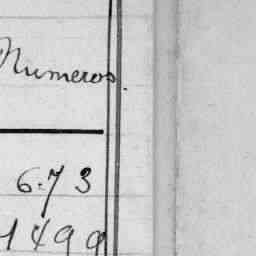 Numeros.
6.73
1499